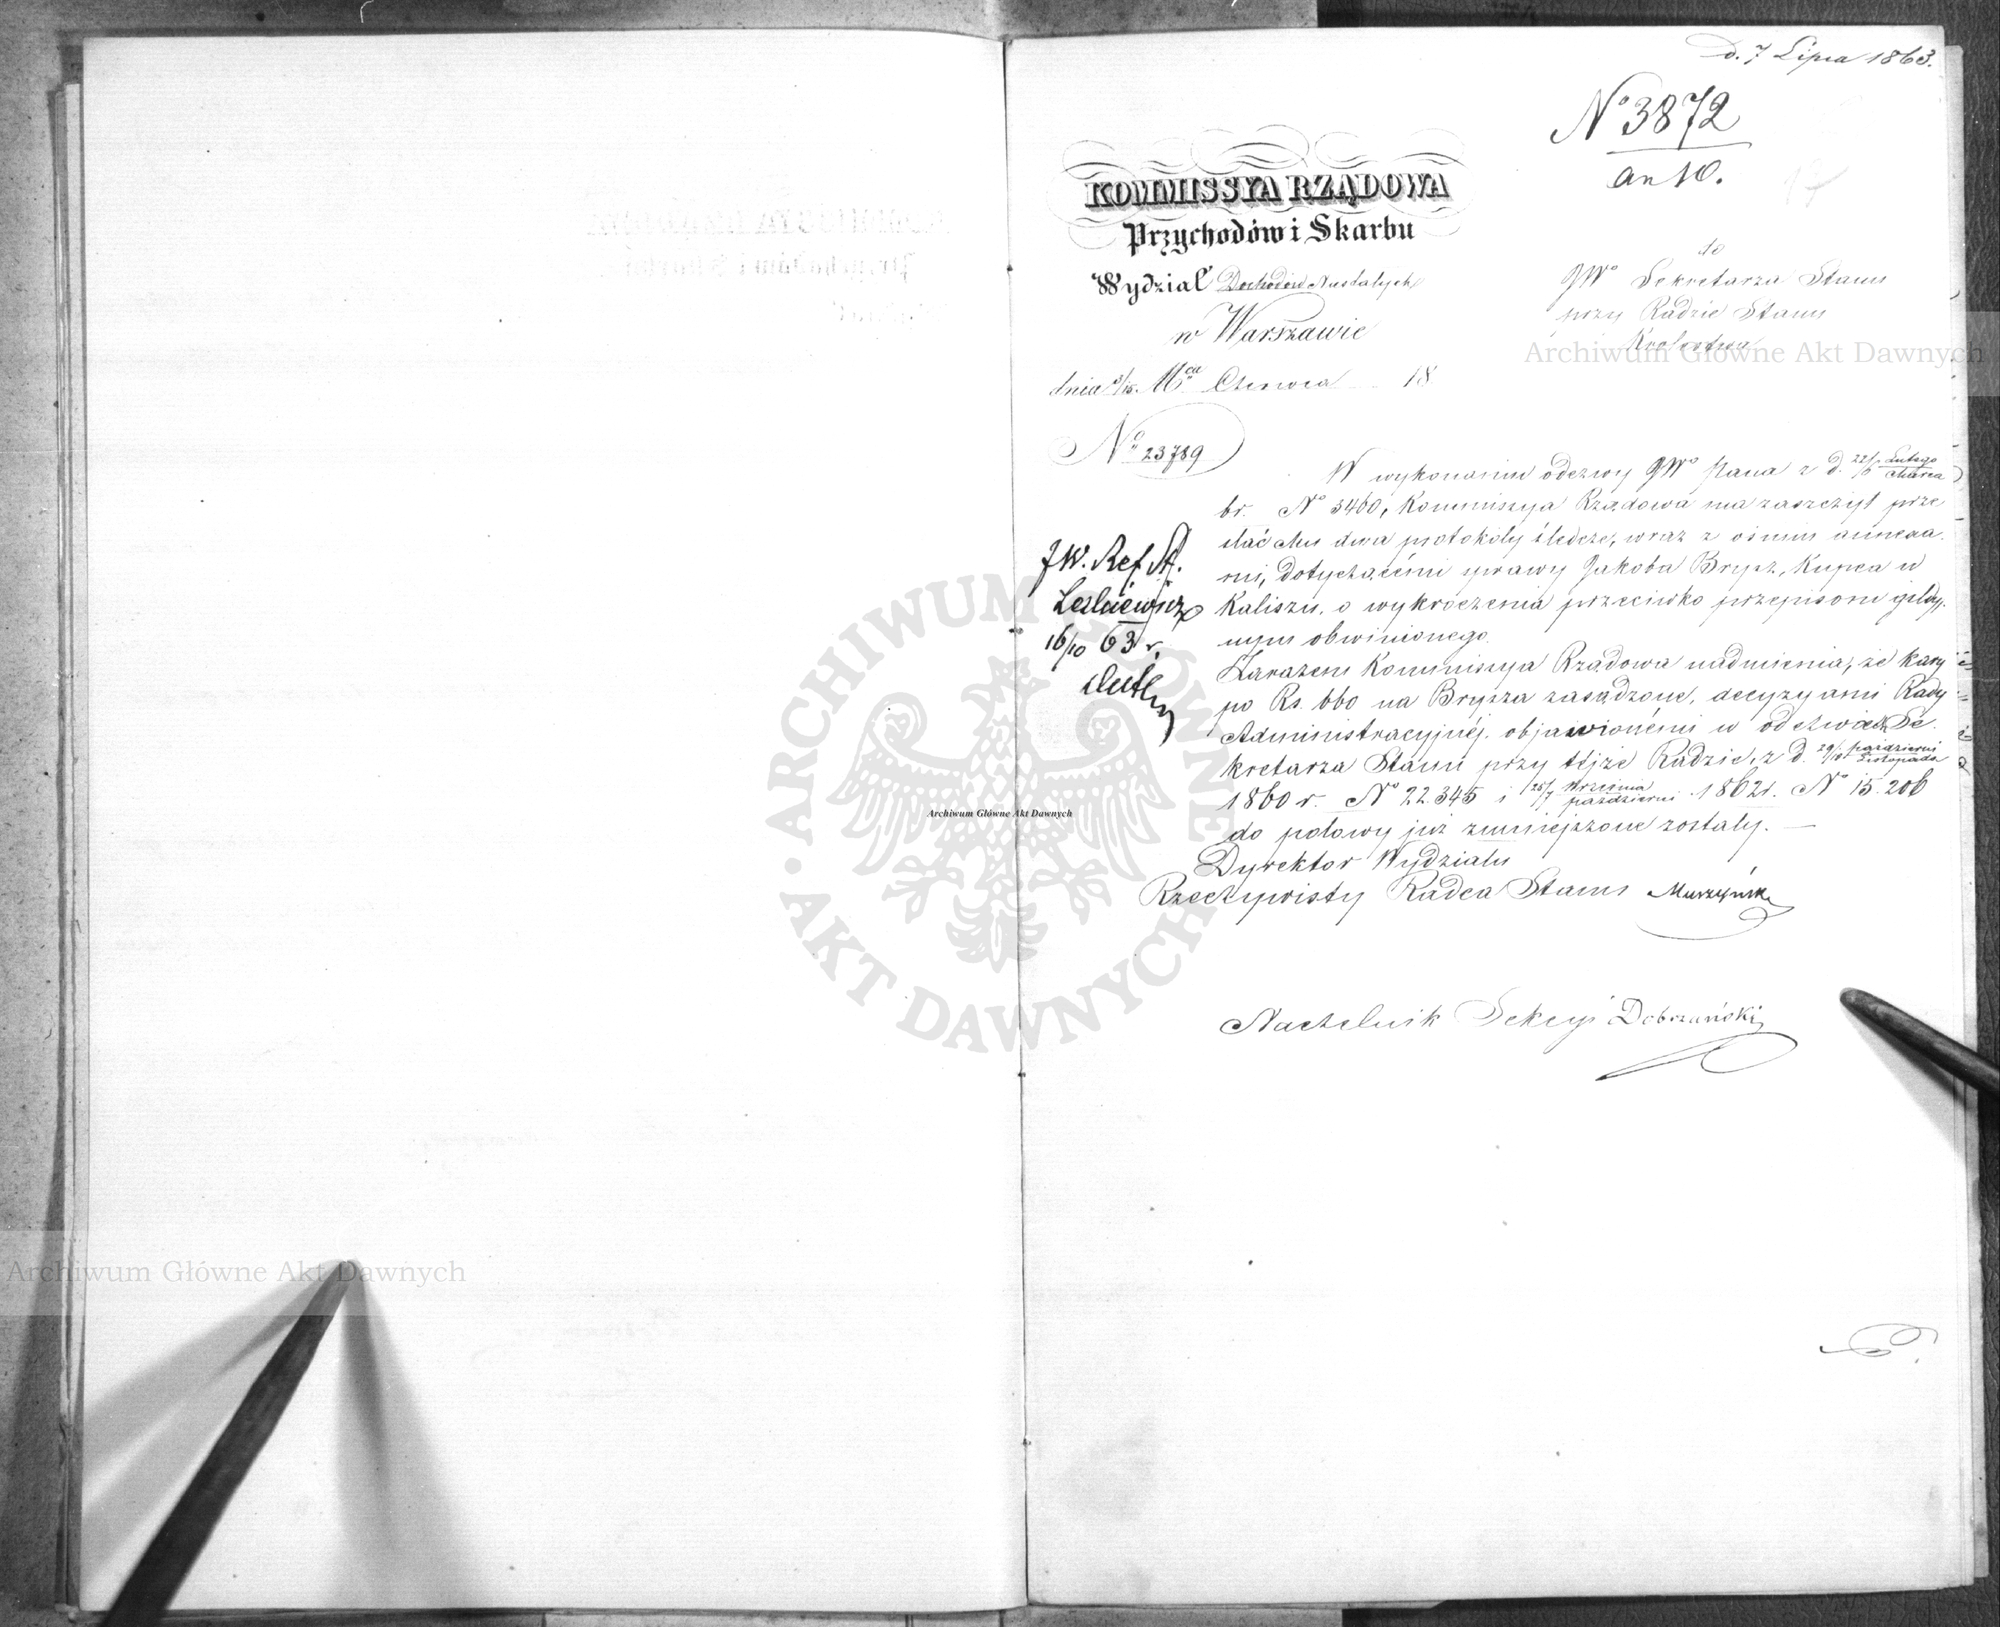 d. 7 Lipca 1863.
No 3872
an 10.
KOMMISSYA RZĄDOWA
Przychodów i Skarbu
Wydział Dochodów Niestałych
w Warszawie
dnia 3/15 Mca Czerwca 18
No 23789
do
JWo Sekretarza Stanu
przy Radzie Stanu
Królestwa
JW. Ref. St.
16/10 63 r.
W wykonaniu odezwy JWo Pana z d. 22/6 Lutego/Marca
br. No 3460, Kommissya Rządowa ma zaszczyt prze
słać Mu dwa protokóły śledcze, wraz z ośmiu annexa
mi, dotyczącemi sprawy Jakóba Brysz, Kupca w
Kaliszu, o wykroczenia przeciwko przepisom gildyj
nym obwinionego.
Zarazem Kommissya Rządowa nadmienia, że kary
po Rs. 660 na Brysza zasądzone, decyzyami Rady
Administracyjnéj, objawionémi w odezwach Se
kretarza Stanu przy téjże Radzie, z d. 29/10 Październi/Listopada
1860 r. No 22.345 i 25/7 Września/Październi 1862 r. No 15.206
do połowy już zmniejszone zostały. —
Dyrektor Wydziału
Rzeczywisty Radca Stanu Murzyński
Naczelnik Sekcyi Dobrzański
Archiwum Główne Akt Dawnych
Archiwum Główne Akt Dawnych
Archiwum Główne Akt Dawnych
ARCHIWUM GŁÓWNE · AKT DAWNYCH ·